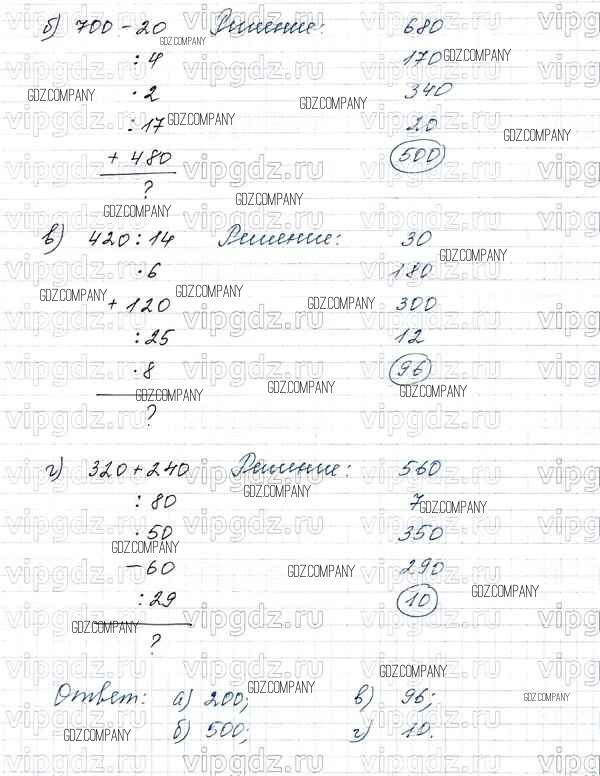 б) 700 - 20 Решение: 680
: 4 170
· 2 340
: 17 20
+ 480 500
?
в) 420 : 14 Решение: 30
· 6 180
+ 120 300
: 25 12
· 8 96
?
г) 320 + 240 Решение: 560
: 80 7
· 50 350
- 60 290
: 29 10
?
Ответ: а) 200; в) 96;
б) 500; г) 10.
vipgdz.ru
GDZ.COMPANY